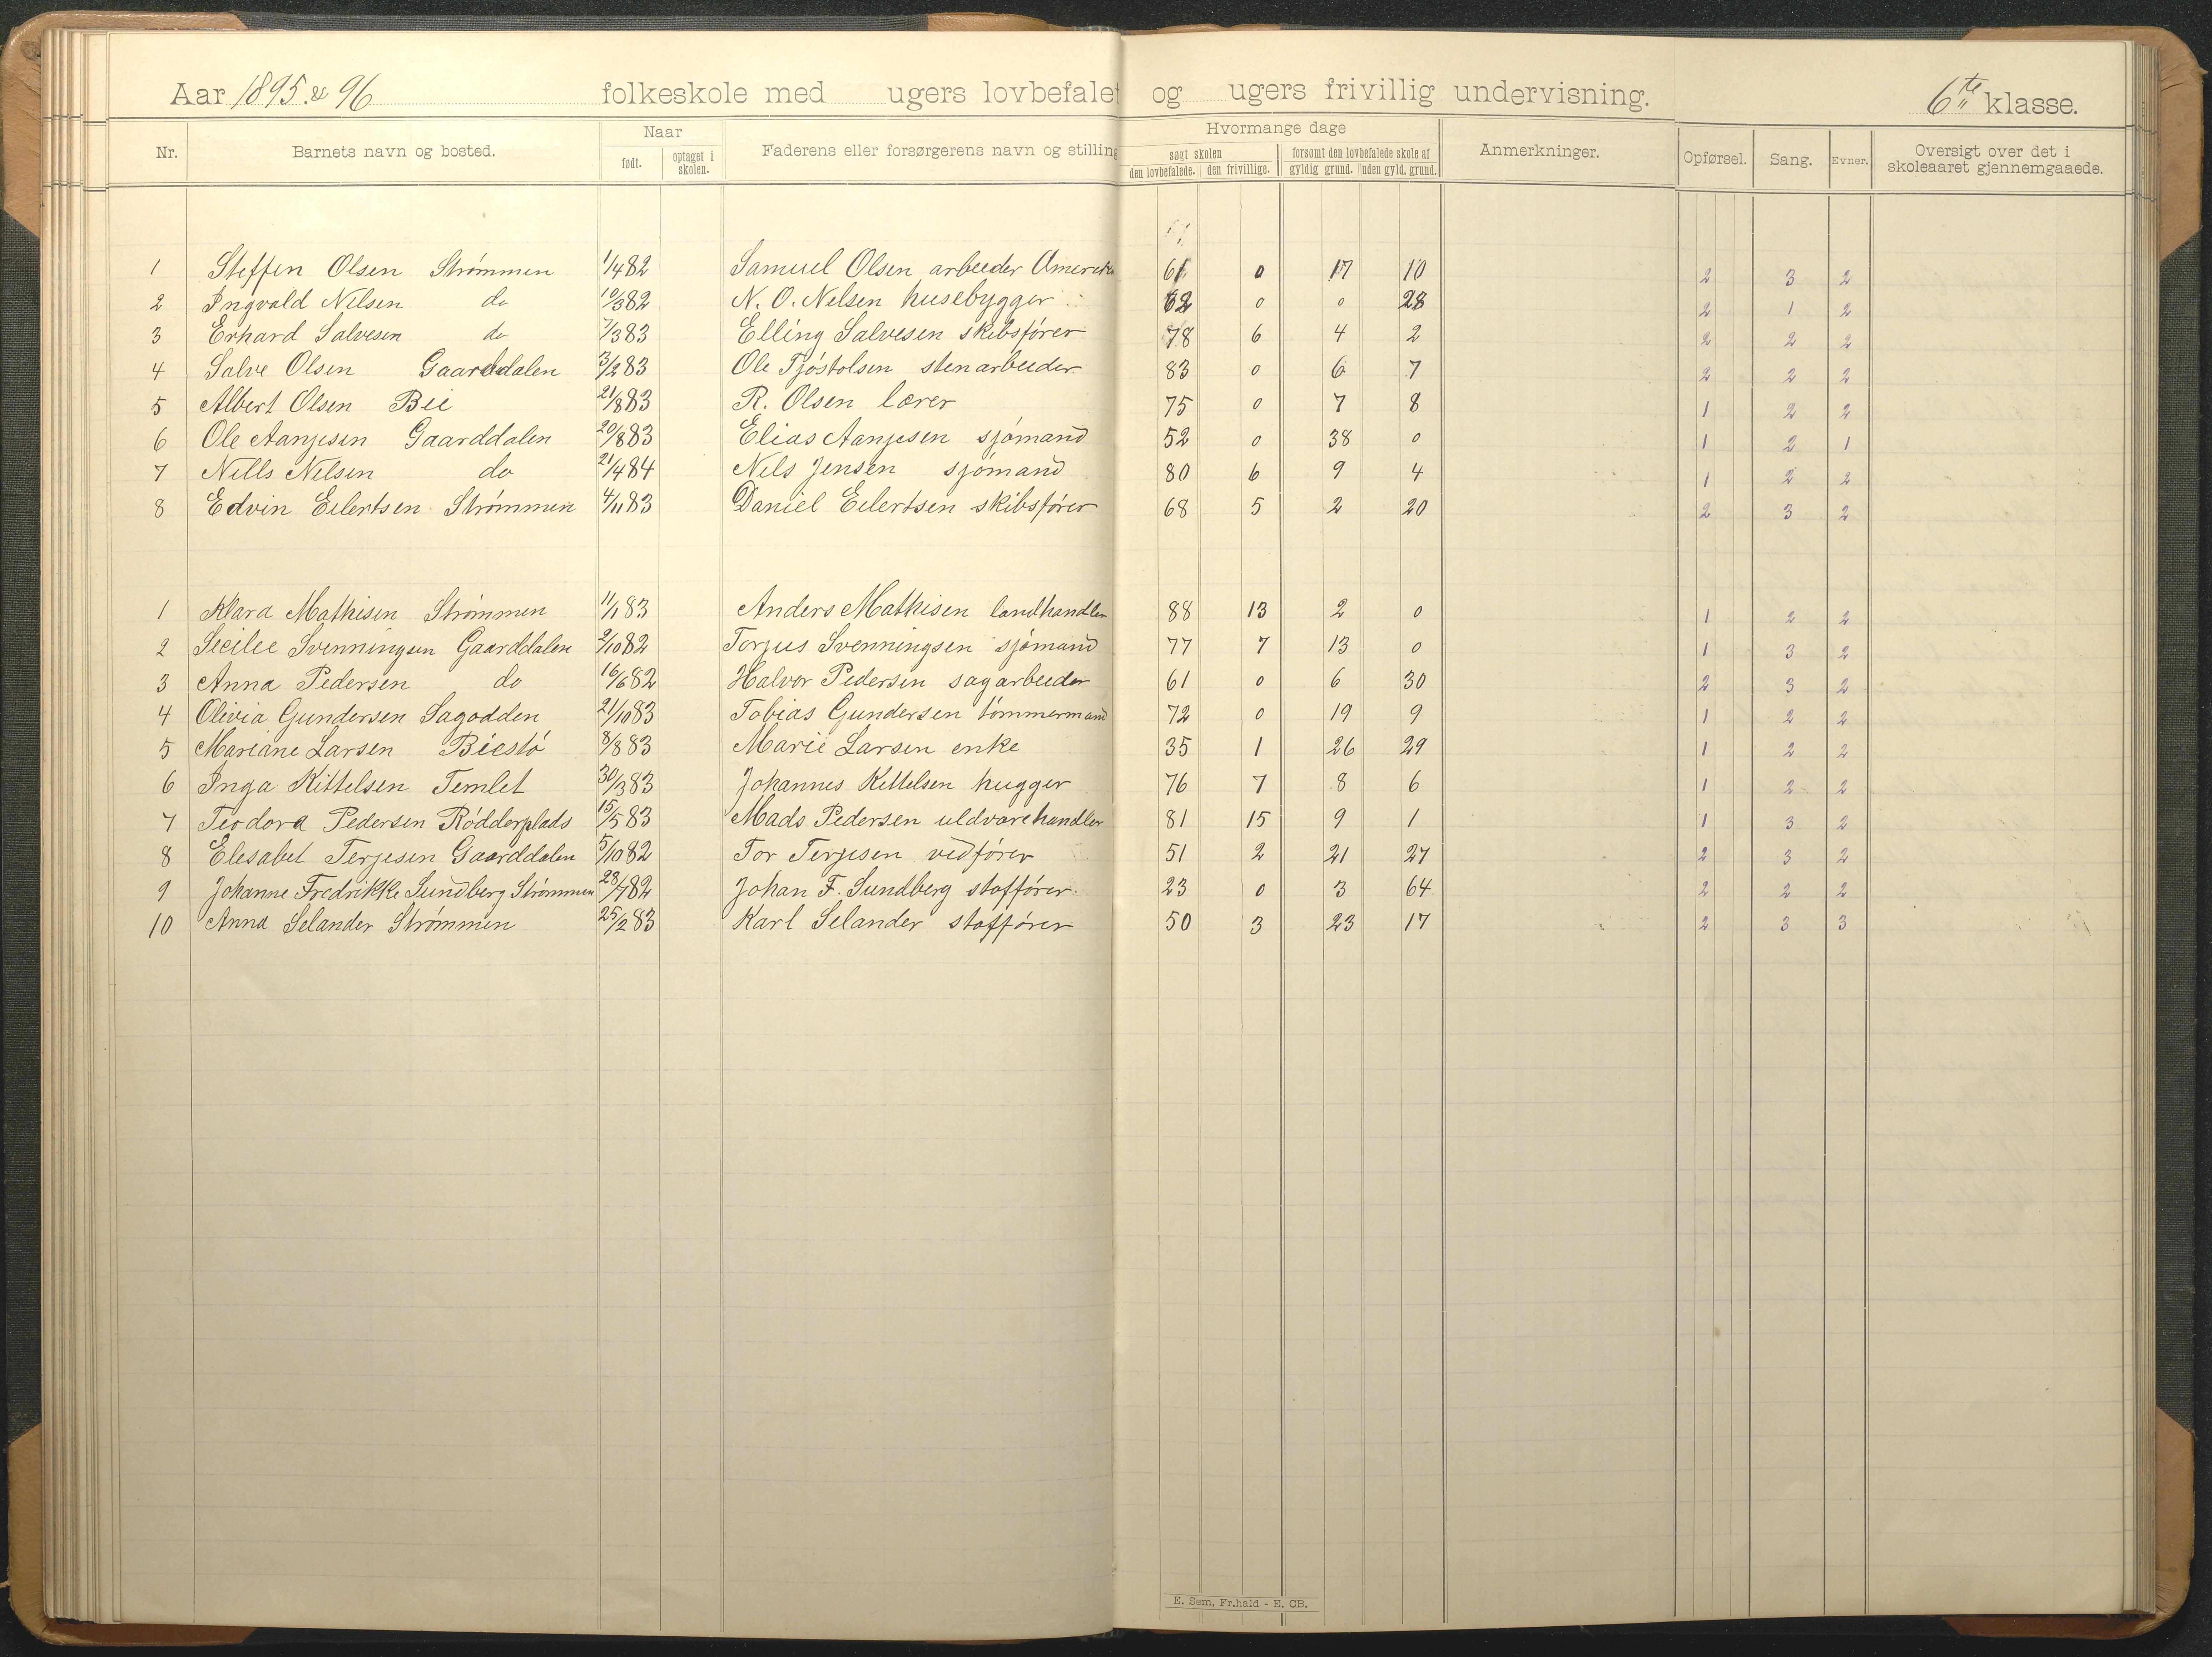 Aar 1895 & 96 folkeskole med ugers lovbefalet og ugers frivillig undervisning. 6te klasse.
Nr. Barnets navn og bosted. Naar født. optaget i skolen. Faderens eller forsørgerens navn og stilling Hvormange dage søgt skolen den lovbefalede. den frivillige. forsømt den lovbefalede skole af gyldig grund. uden gyld. grund. Anmerkninger. Opførsel. Sang. Evner. Oversigt over det i skoleaaret gjennemgaaede.
1 Steffen Olsen Strømmen 1/4 82 Samuel Olsen arbeider Amerika 61 0 17 10 2 3 2
2 Ingvald Nilsen do 10/3 82 N. O. Nelsen husebygger 62 0 0 28 2 1 2
3 Erhard Salvesen do 7/3 83 Elling Salvesen skibsfører 78 6 4 2 2 2 2
4 Salve Olsen Gaarddalen 3/2 83 Ole Tjøstolsen stenarbeider 83 0 6 7 2 2 2
5 Albert Olsen Bie 21/8 83 R. Olsen lærer 75 0 7 8 1 2 2
6 Ole Aanjesen Gaarddalen 20/8 83 Elias Aanjesen sjømand 52 0 38 0 1 2 1
7 Nills Nilsen do 21/4 84 Nels Jensen sjømand 80 6 9 4 1 2 2
8 Edvin Eilertsen Strømmen 4/11 83 Daniel Eilertsen skibsfører 68 5 2 20 2 3 2
1 Klara Mathisen Strømmen 11/1 83 Anders Mathisen landhandler 88 13 2 0 1 2 2
2 Secilie Svenningsen Gaarddalen 2/10 82 Torjus Svenningsen sjømand 77 7 13 0 1 3 2
3 Anna Pedersen do 16/6 82 Halvor Pedersen sagarbeider 61 0 6 30 2 3 2
4 Olivia Gundersen Sagodden 21/10 83 Tobias Gundersen tømmermand 72 0 19 9 1 2 2
5 Mariane Larsen Biestø 8/8 83 Marie Larsen enke 35 1 26 29 1 2 2
6 Inga Kittelsen Temlet 30/3 83 Johannes Kittelsen hugger 76 7 8 6 1 2 2
7 Teodora Pedersen Rødderplads 15/5 83 Mads Pedersen uldvarehandler 81 15 9 1 1 3 2
8 Elesabet Terjesen Gaarddalen 5/10 82 Tor Terjesen vedfører 51 2 21 27 2 3 2
9 Johanne Fredrikke Sundberg Strømmen 23/7 82 Johan F. Sundberg stoffører 23 0 3 64 2 2 2
10 Anna Selander Strømmen 25/2 83 Karl Selander stoffører 50 3 23 17 2 3 3
E. Sem, Fr.hald - E. CB.